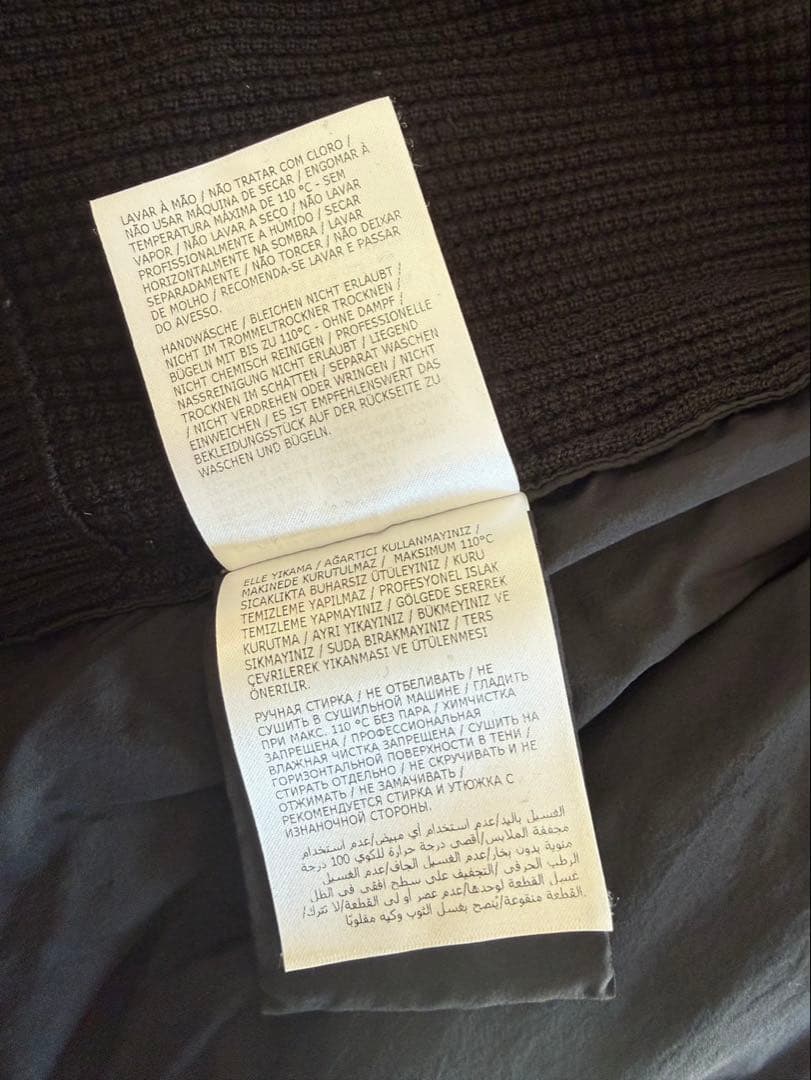 LAVAR À MÃO / NÃO TRATAR COM CLORO /
NÃO USAR MÁQUINA DE SECAR / ENGOMAR À
TEMPERATURA MÁXIMA DE 110 °C - SEM
VAPOR / NÃO LAVAR A SECO / NÃO LAVAR
PROFISSIONALMENTE A HÚMIDO / SECAR
HORIZONTALMENTE NA SOMBRA / LAVAR
SEPARADAMENTE / NÃO TORCER / NÃO DEIXAR
DE MOLHO / RECOMENDA-SE LAVAR E PASSAR
DO AVESSO.
HANDWÄSCHE / BLEICHEN NICHT ERLAUBT /
NICHT IM TROMMELTROCKNER TROCKNEN /
BÜGELN MIT BIS ZU 110°C - OHNE DAMPF /
NICHT CHEMISCH REINIGEN / PROFESSIONELLE
NASSREINIGUNG NICHT ERLAUBT / LIEGEND
TROCKNEN IM SCHATTEN / SEPARAT WASCHEN
/ NICHT VERDREHEN ODER WRINGEN / NICHT
EINWEICHEN / ES IST EMPFEHLENSWERT DAS
BEKLEIDUNGSSTÜCK AUF DER RÜCKSEITE ZU
WASCHEN UND BÜGELN.
ELLE YIKAMA / AĞARTICI KULLANMAYINIZ /
MAKINEDE KURUTULMAZ / MAKSIMUM 110°C
SICAKLIKTA BUHARSIZ ÜTÜLEYINIZ / KURU
TEMIZLEME YAPILMAZ / PROFESYONEL ISLAK
TEMIZLEME YAPMAYINIZ / GÖLGEDE SEREREK
KURUTMA / AYRI YIKAYINIZ / BÜKMEYINIZ VE
SIKMAYINIZ / SUDA BIRAKMAYINIZ / TERS
ÇEVRILEREK YIKANMASI VE ÜTÜLENMESI
ÖNERILIR.
РУЧНАЯ СТИРКА / НЕ ОТБЕЛИВАТЬ / НЕ
СУШИТЬ В СУШИЛЬНОЙ МАШИНЕ / ГЛАДИТЬ
ПРИ МАКС. 110 °C БЕЗ ПАРА / ХИМЧИСТКА
ЗАПРЕЩЕНА / ПРОФЕССИОНАЛЬНАЯ
ВЛАЖНАЯ ЧИСТКА ЗАПРЕЩЕНА / СУШИТЬ НА
ГОРИЗОНТАЛЬНОЙ ПОВЕРХНОСТИ В ТЕНИ /
СТИРАТЬ ОТДЕЛЬНО / НЕ СКРУЧИВАТЬ И НЕ
ОТЖИМАТЬ / НЕ ЗАМАЧИВАТЬ /
РЕКОМЕНДУЕТСЯ СТИРКА И УТЮЖКА С
ИЗНАНОЧНОЙ СТОРОНЫ.
الغسيل باليد/عدم استخدام أي مبيض/عدم استخدام
مجففة الملابس/أقصى درجة حرارة للكوي 100 درجة
مئوية بدون بخار/عدم الغسيل الجاف/عدم الغسيل
الرطب الحرفي /التجفيف على سطح افقى في الظل
غسيل القطعة لوحدها/عدم عصر أو لى القطعة/لا تترك/
القطعة منقوعة/يُنصح بغسل الثوب وكيه مقلوبًا.